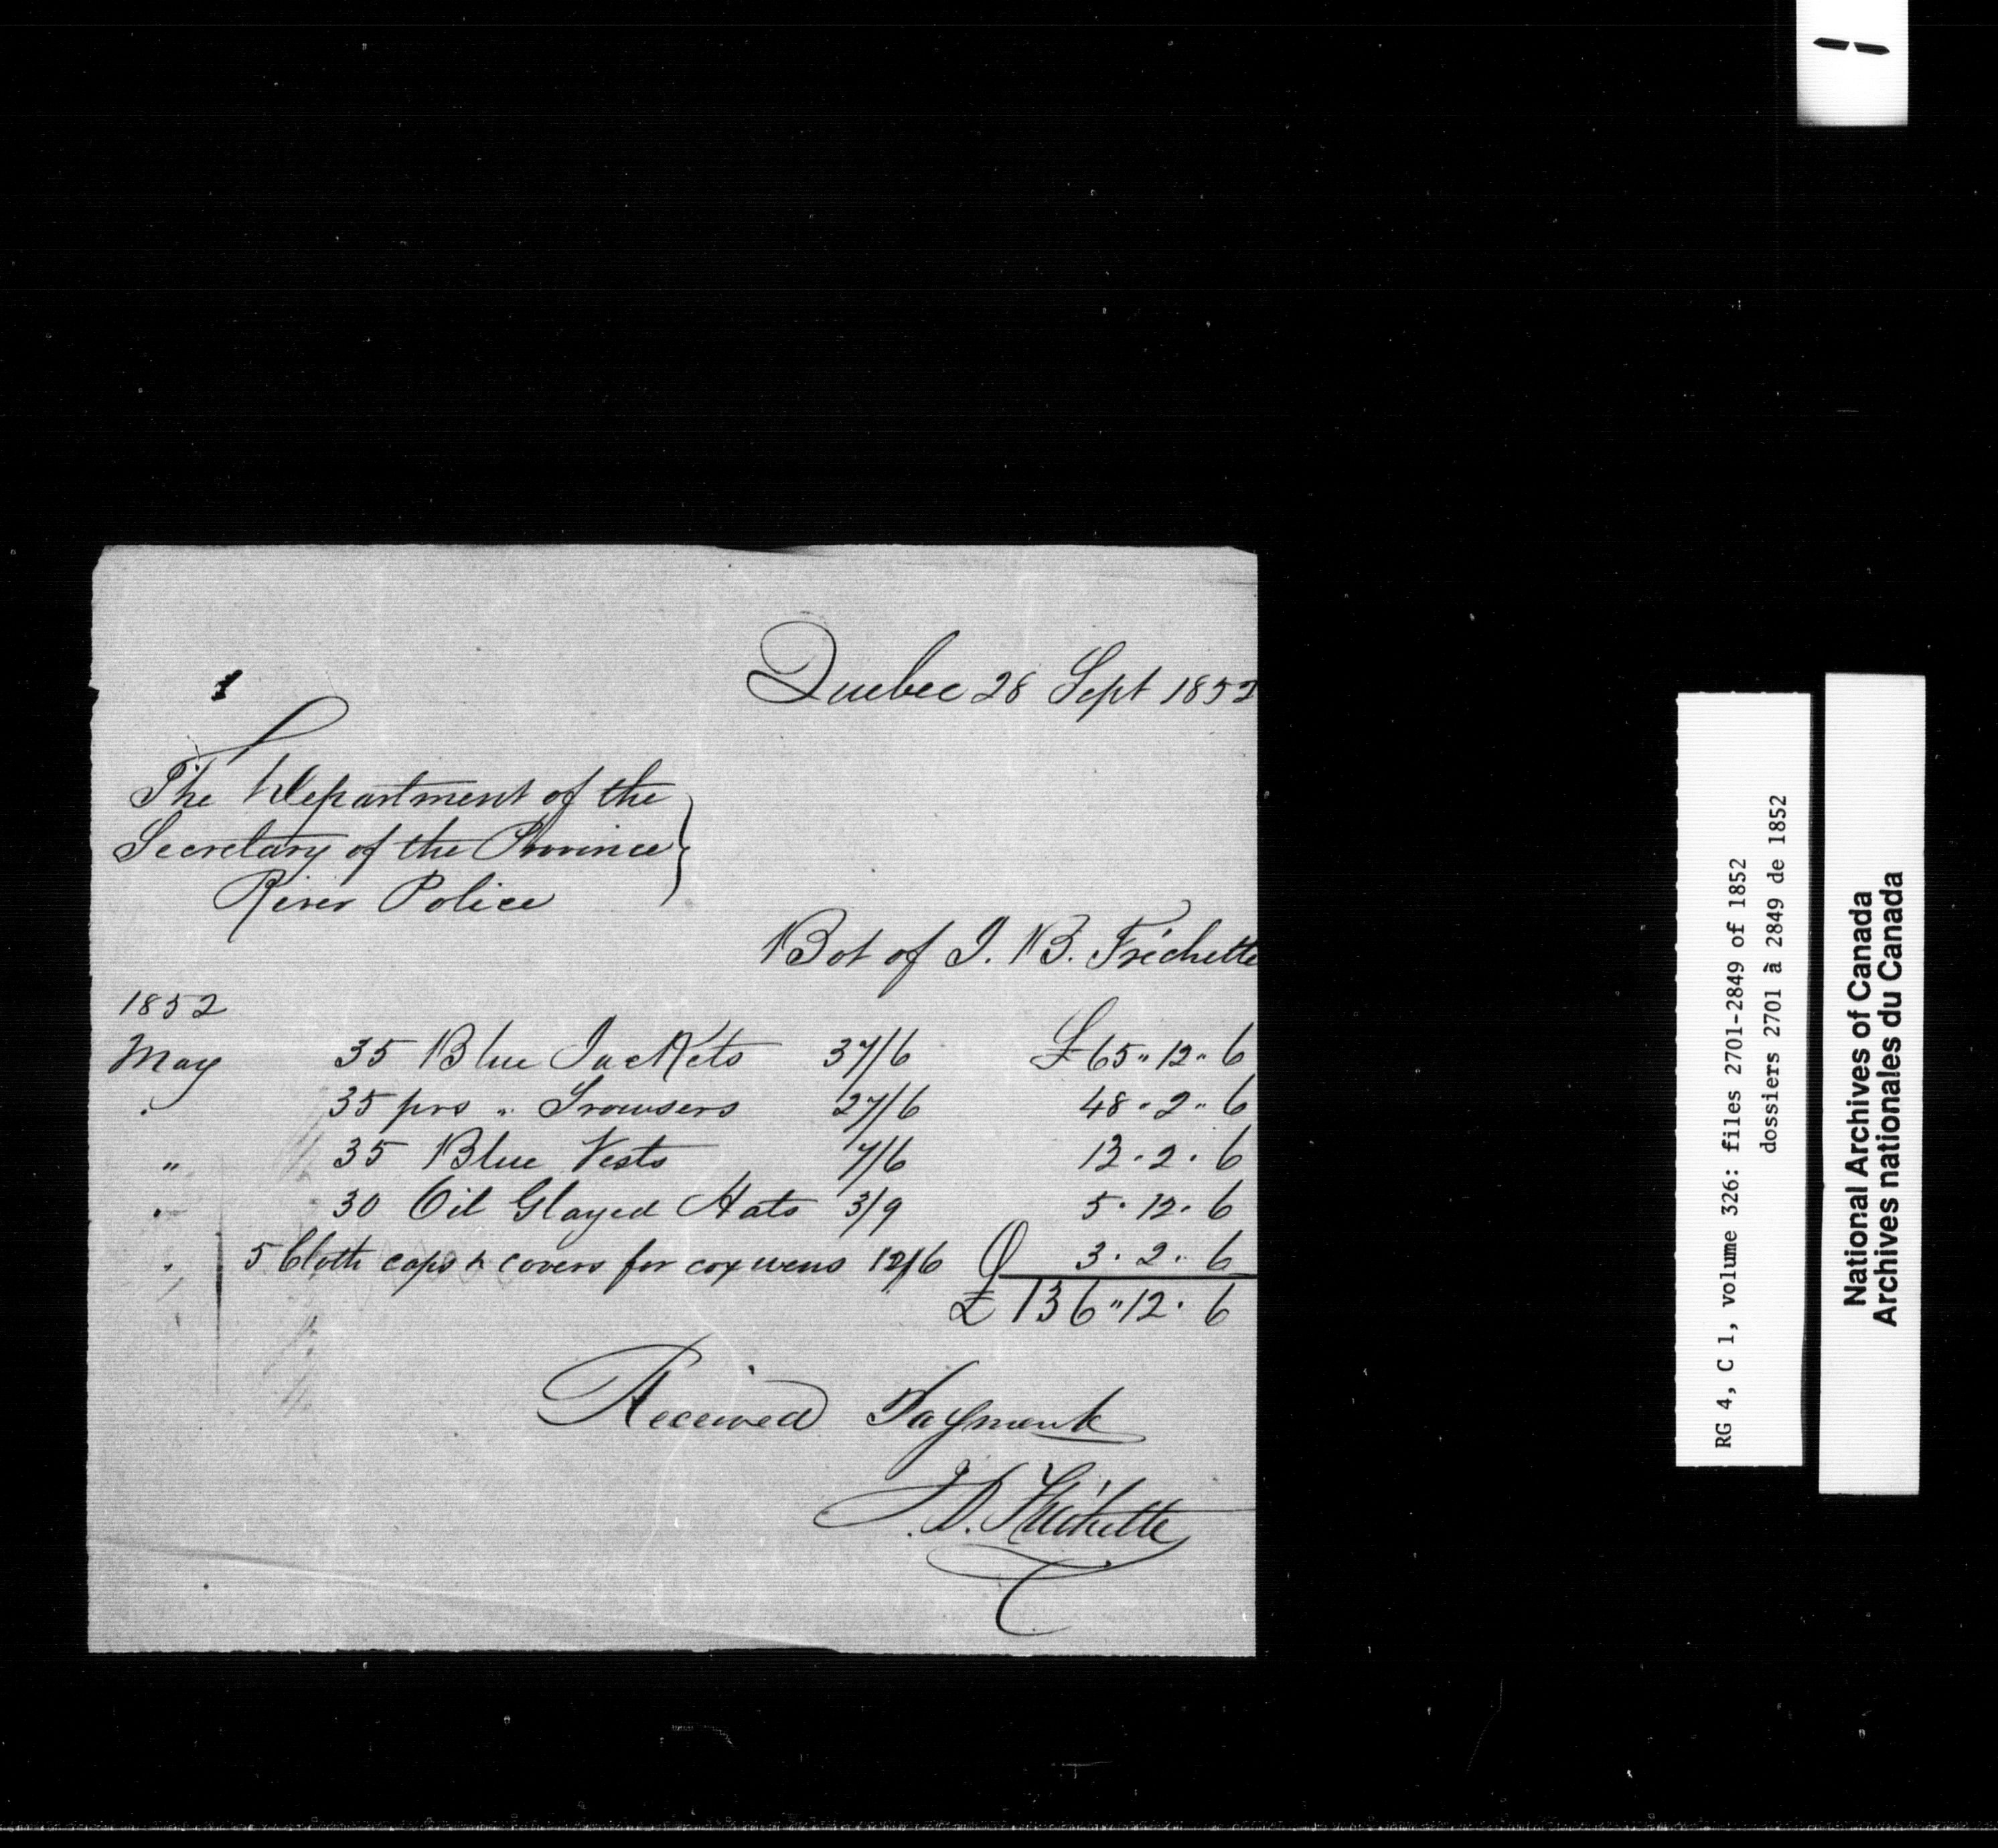 Quebec 28 Sept 1852
The Department of the
Secretary of the Province
River Police
Bot of J. B. Fréchette
1852
May 35 Blue Jackets 37/6 £65 " 12 " 6
" 35 prs " Trowsers 27/6 48 " 2 " 6
" 35 Blue Vests 7/6 13 . 2 . 6
" 30 Oil Glazed Hats 3/9 5 . 12 . 6
" 5 Cloth caps & covers for coxwens 12/6 3 . 2 . 6
£136 " 12 . 6
Received Payment
J. B. Fréchette
RG 4, C 1, volume 326: files 2701-2849 of 1852
dossiers 2701 à 2849 de 1852
National Archives of Canada
Archives nationales du Canada